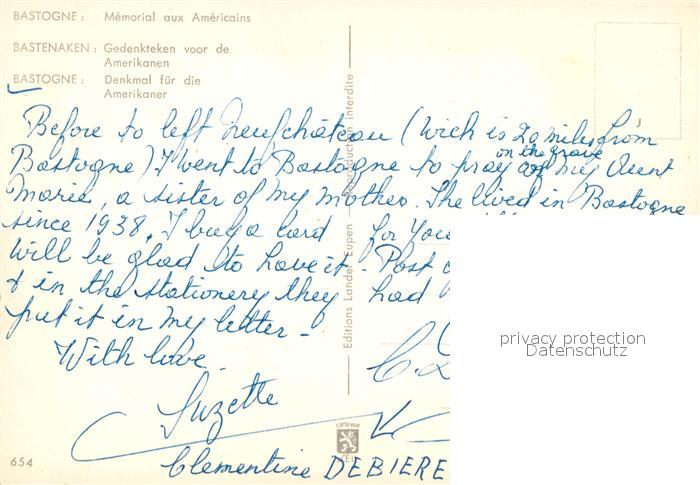 BASTOGNE : Mémorial aux Américains
BASTENAKEN : Gedenkteken voor de
Amerikanen
BASTOGNE : Denkmal für die
Amerikaner
Before to left Neufchâteau (wich is 20 miles from
Bastogne) I went to Bastogne to pray on the grave of my Aunt
Marie, a sister of my mother. She lived in Bastogne
since 1938. I buy a card for you
will be glad to have it - Post
+ in the stationery they had
put it in my letter -
With love
Suzette
C.
Clementine DEBIERE
Editions Lander, Eupen - Reproduction interdite
carte vue
CEL
654
privacy protection
Datenschutz